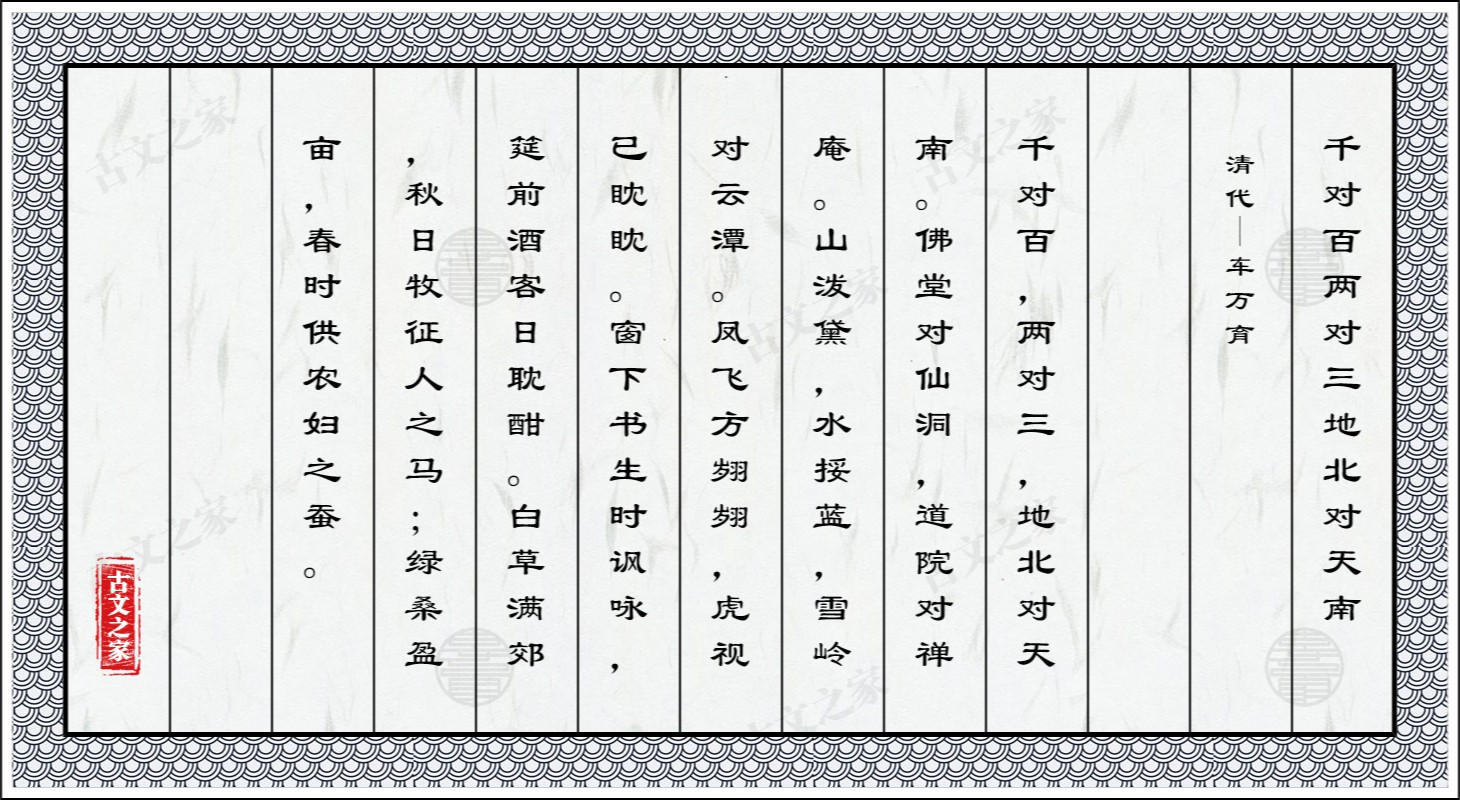 千对百两对三地北对天南
清代—车万育
千对百，两对三，地北对天
南。佛堂对仙洞，道院对禅
庵。山泼黛，水挼蓝，雪岭
对云潭。凤飞方翙翙，虎视
已眈眈。窗下书生时讽咏，
筵前酒客日耽酣。白草满郊
，秋日牧征人之马；绿桑盈
亩，春时供农妇之蚕。
古文之家